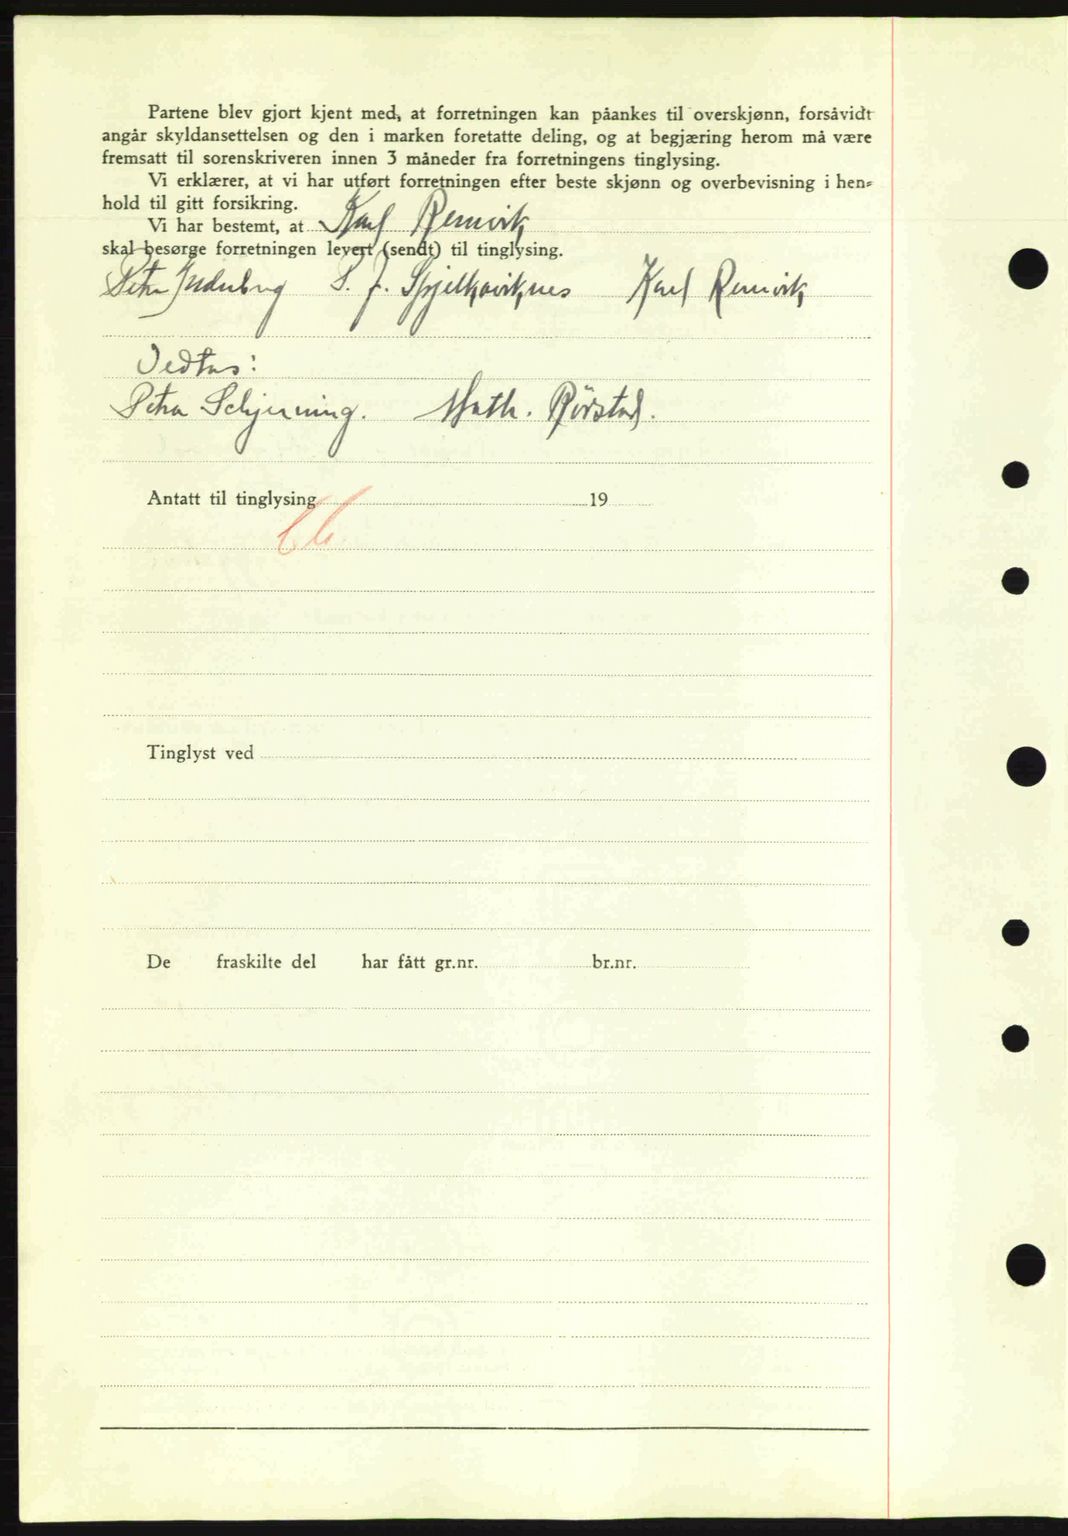 Partene blev gjort kjent med, at forretningen kan påankes til overskjønn, forsåvidt
angår skyldansettelsen og den i marken foretatte deling, og at begjæring herom må være
fremsatt til sorenskriveren innen 3 måneder fra forretningens tinglysing.
Vi erklærer, at vi har utført forretningen efter beste skjønn og overbevisning i hen-
hold til gitt forsikring.
Vi har bestemt, at Karl Remvik
skal besørge forretningen levert (sendt) til tinglysing.
Petter S. J. Spjelkaviknes Karl Remvik
Vedtas:
Petra Schjerning. Math. Rörstad.
Antatt til tinglysing 19
Tinglyst ved
De fraskilte del har fått gr.nr. br.nr.